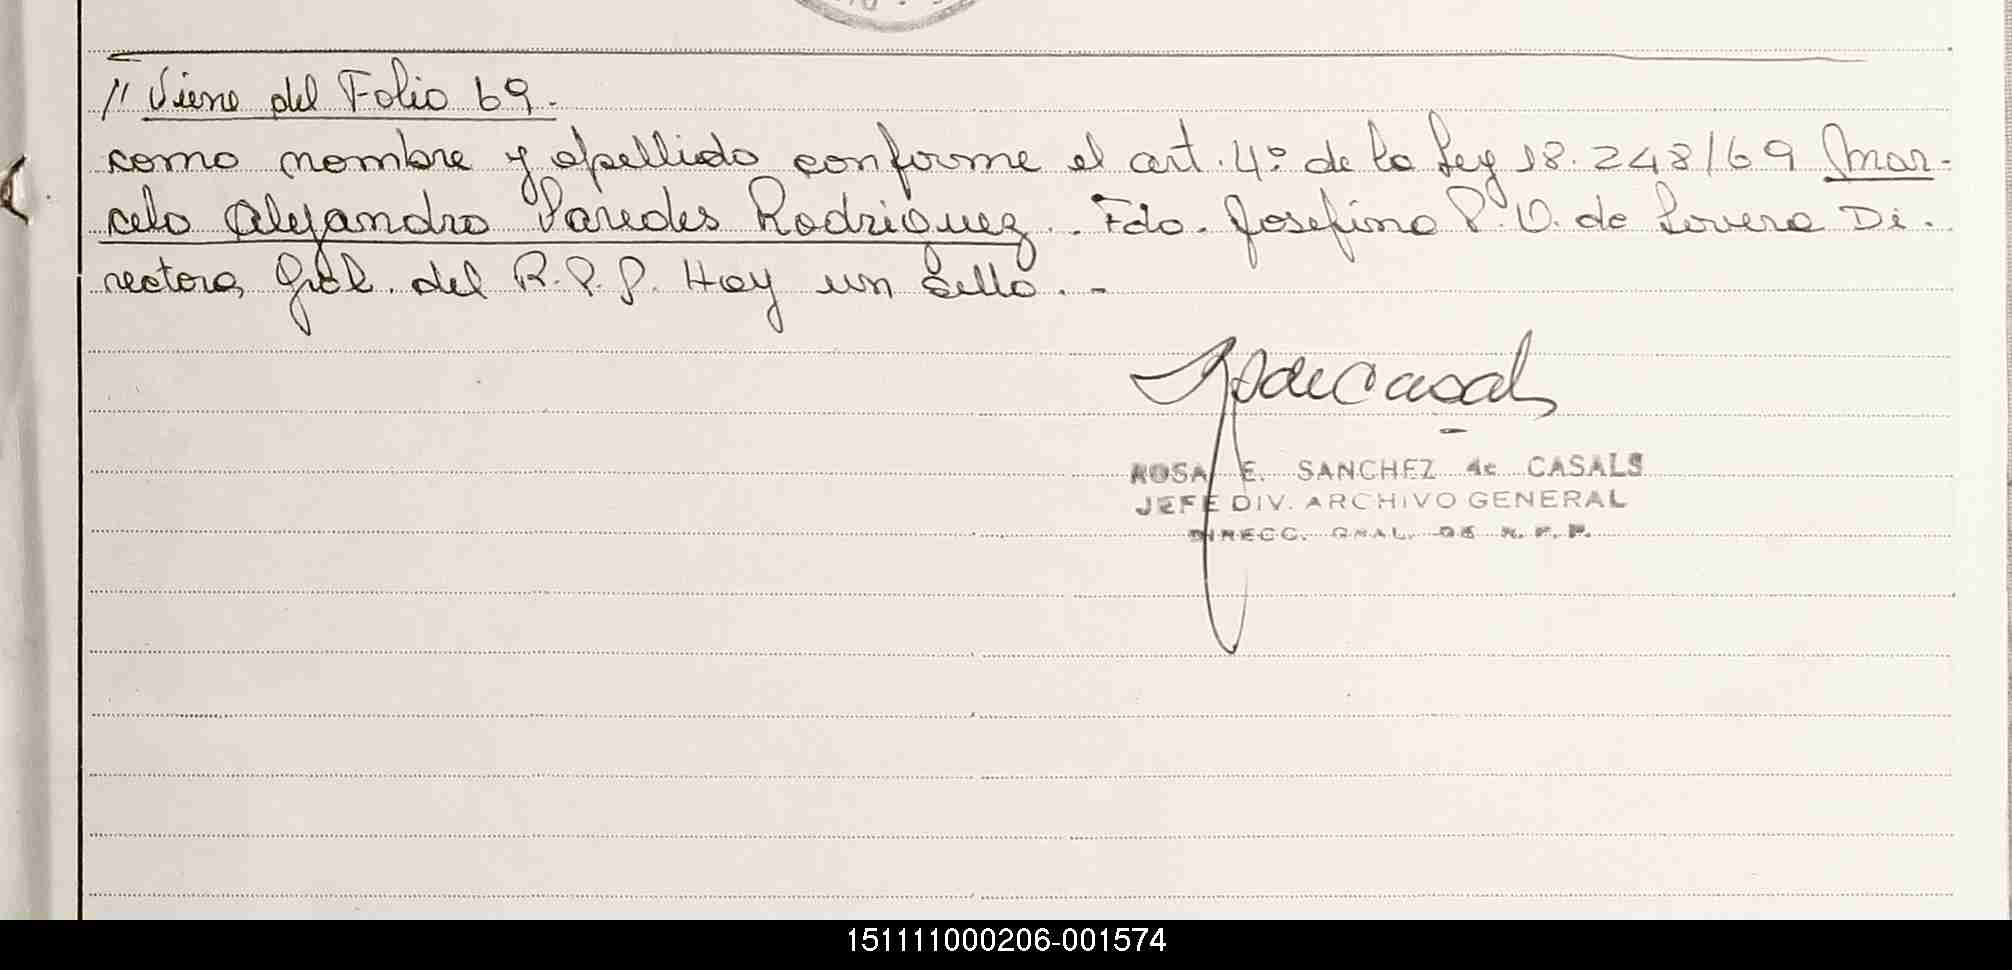 // Viene del Folio 69.-
como nombre y apellido conforme el art. 4º de la Ley 18.248/69 Mar-
celo Alejandro Paredes Rodriguez.. Fdo. Josefina P.V. de Lovera Di-
rectora Gral. del R.P.P. Hay un sello.-
ROSA E. SANCHEZ de CASALS
JEFE DIV. ARCHIVO GENERAL
DIRECC. GRAL. DE R.P.P.
151111000206-001574